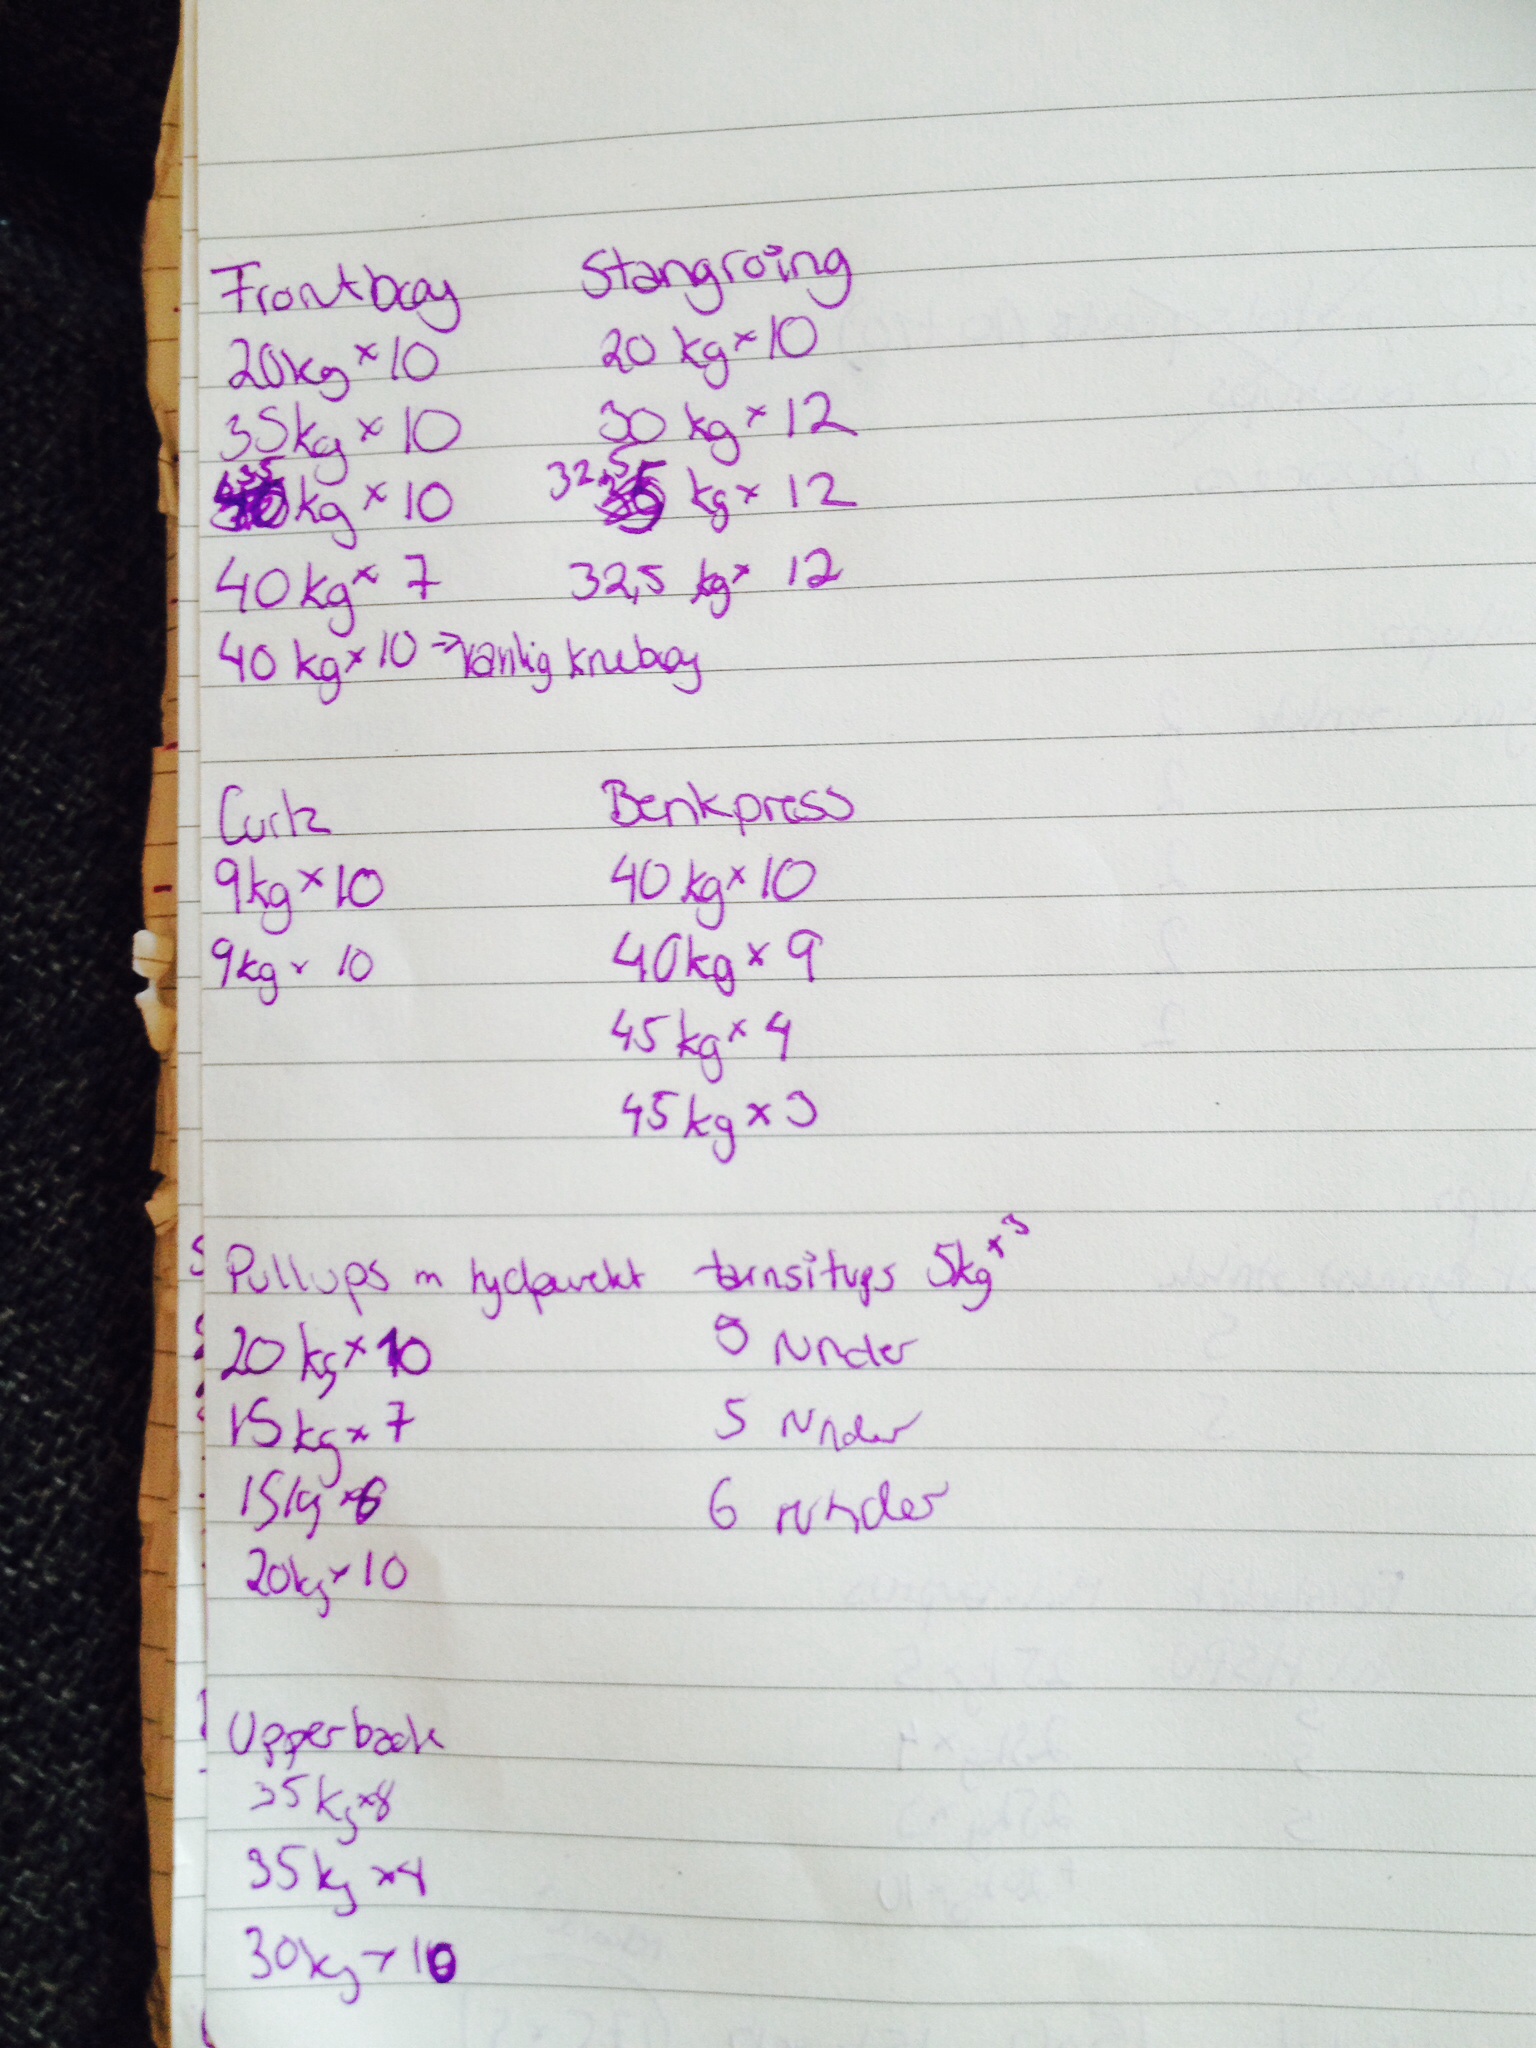 Frontbøy
20kg x 10
35kg x 10
35 kg x 10
40 kg x 7
40 kg x 10 → vanlig knebøy
Stangroing
20 kg x 10
30 kg x 12
32,5 kg x 12
32,5 kg x 12
Curlz
9kg x 10
9kg x 10
Benkpress
40 kg x 10
40kg x 9
45 kg x 4
45 kg x 3
Pullups m hjelpevekt
20 kg x 10
15 kg x 7
15kg x 6
20kg x 10
situps 5kg x 3
runder
5 runder
6 runder
Upperback
35 kg x 8
35 kg x 4
30kg x 10